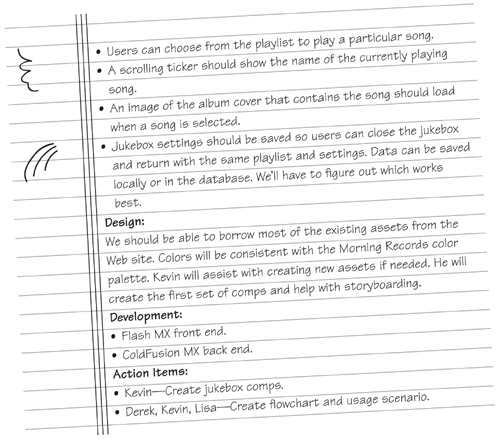 • Users can choose from the playlist to play a particular song.
• A scrolling ticker should show the name of the currently playing
song.
• An image of the album cover that contains the song should load
when a song is selected.
• Jukebox settings should be saved so users can close the jukebox
and return with the same playlist and settings. Data can be saved
locally or in the database. We'll have to figure out which works
best.
Design:
We should be able to borrow most of the existing assets from the
Web site. Colors will be consistent with the Morning Records color
palette. Kevin will assist with creating new assets if needed. He will
create the first set of comps and help with storyboarding.
Development:
• Flash MX front end.
• ColdFusion MX back end.
Action Items:
• Kevin—Create jukebox comps.
• Derek, Kevin, Lisa—Create flowchart and usage scenario.